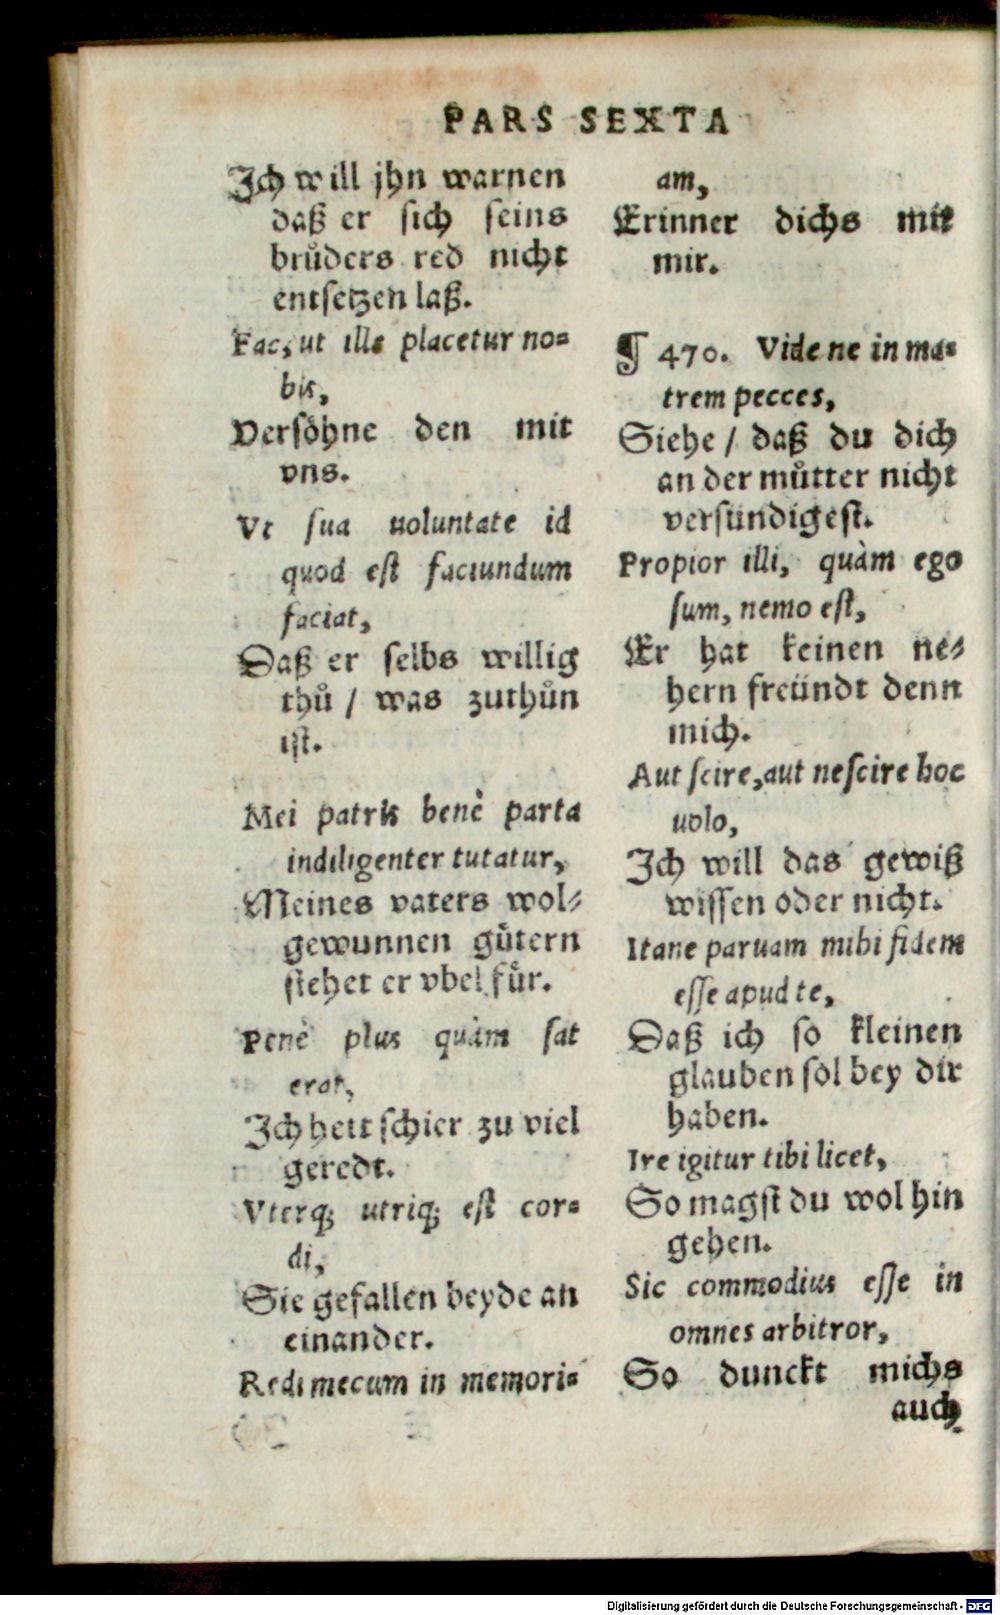 PARS SEXTA
Ich will jhn warnen
daß er sich seins
bruͦders red nicht
entsetzen laß.
Fac, ut ille placetur no=
bis,
Versoͤhne den mit
vns.
Vt sua uoluntate id
quod est faciundum
faciat,
Daß er selbs willig
thuͦ / was zuthuͦn
ist.
Mei patris benè parta
indiligenter tutatur,
Meines vaters wol=
gewunnen guͤtern
stehet er vbel fuͤr.
Penè plus quàm sat
erat,
Ich hett schier zu viel
geredt.
Vterq; utriq; est cor=
di,
Sie gefallen beyde an
einander.
Redi mecum in memori=
am,
Erinner dichs mit
mir.
¶ 470. Vide ne in ma=
trem pecces,
Siehe / daß du dich
an der muͦtter nicht
versündigest.
Propior illi, quàm ego
sum, nemo est,
Er hat keinen ne=
hern freündt denn
mich.
Aut scire, aut nescire hoc
uolo,
Ich will das gewiß
wissen oder nicht.
Itane paruam mihi fidem
esse apud te,
Daß ich so kleinen
glauben sol bey dir
haben.
Ire igitur tibi licet,
So magst du wol hin
gehen.
Sic commodius esse in
omnes arbitror,
So dunckt michs
auch
Digitalisierung gefördert durch die Deutsche Forschungsgemeinschaft - DFG